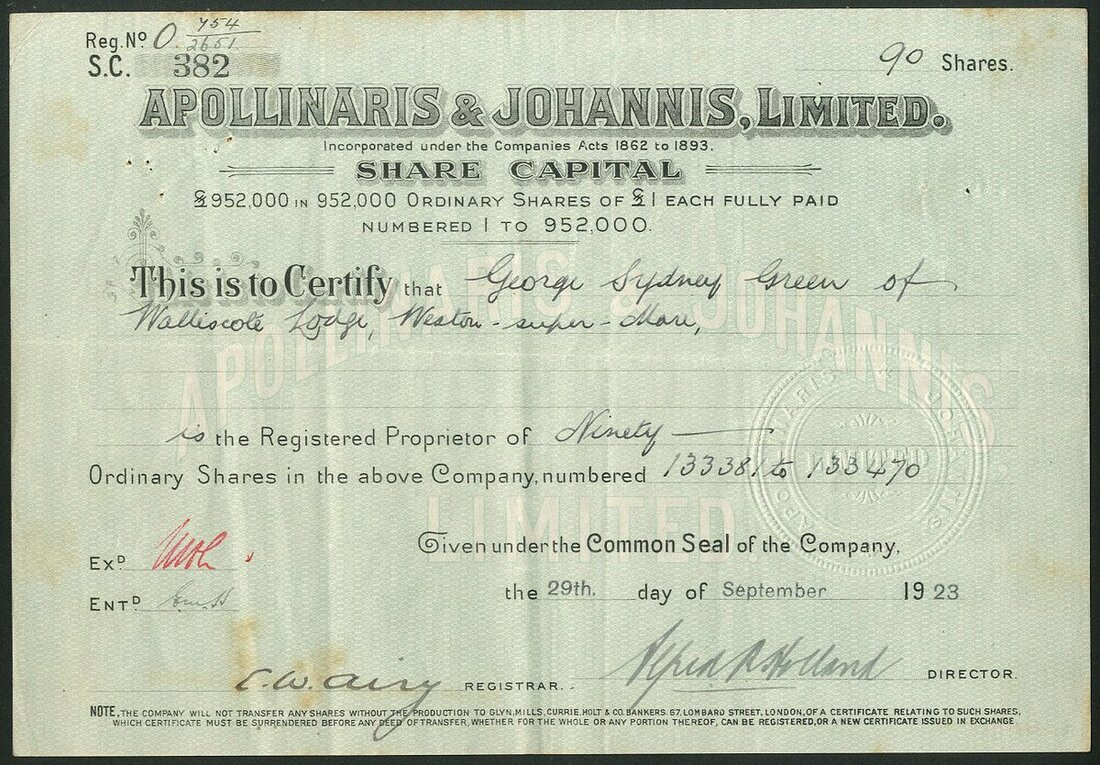 Reg. Nº O. 754
2651
90 Shares.
S.C. 382
APOLLINARIS & JOHANNIS, LIMITED.
Incorporated under the Companies Acts 1862 to 1893.
SHARE CAPITAL
£952,000 IN 952,000 ORDINARY SHARES OF £1 EACH FULLY PAID
NUMBERED 1 TO 952,000.
This is to Certify that George Sydney Green of
Walliscote Lodge, Weston-super-Mare,
is the Registered Proprietor of Ninety
Ordinary Shares in the above Company, numbered 133381 to 133470
APOLLINARIS & JOHANNIS
LIMITED
Given under the Common Seal of the Company,
Exᴰ
the 29th. day of September 1923
Entᴰ
C.W. Airy REGISTRAR. Alfred R. Holland DIRECTOR.
NOTE, THE COMPANY WILL NOT TRANSFER ANY SHARES WITHOUT THE PRODUCTION TO GLYN, MILLS, CURRIE, HOLT & CO. BANKERS. 67, LOMBARD STREET, LONDON, OF A CERTIFICATE RELATING TO SUCH SHARES,
WHICH CERTIFICATE MUST BE SURRENDERED BEFORE ANY DEED OF TRANSFER, WHETHER FOR THE WHOLE OR ANY PORTION THEREOF, CAN BE REGISTERED, OR A NEW CERTIFICATE ISSUED IN EXCHANGE.